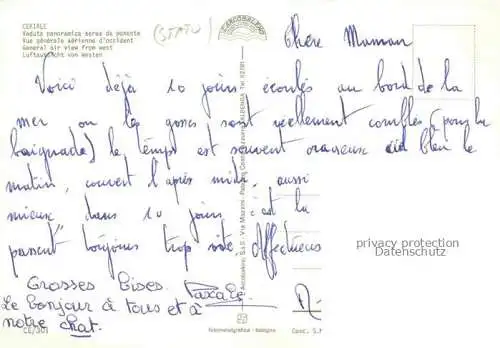 CERIALE
Veduta panoramica aerea da ponente
Vue générale aérienne d'occident
General air view from west
Luftansicht von Westen
Chère Maman
Voici déjà 10 jours écoulés au bord de la
mer ou les gosses sont réellement comblés (pour la
baignade) le temps est souvent orageux bleu le
matin, couvert l'après midi, aussi
mieux dans 10 jours c'est la
passent toujours trop vite. Affectueus
Grosses Bises. Pascale
Le bonjour à tous et à
notre chat.
CE/301
privacy protection
Datenschutz